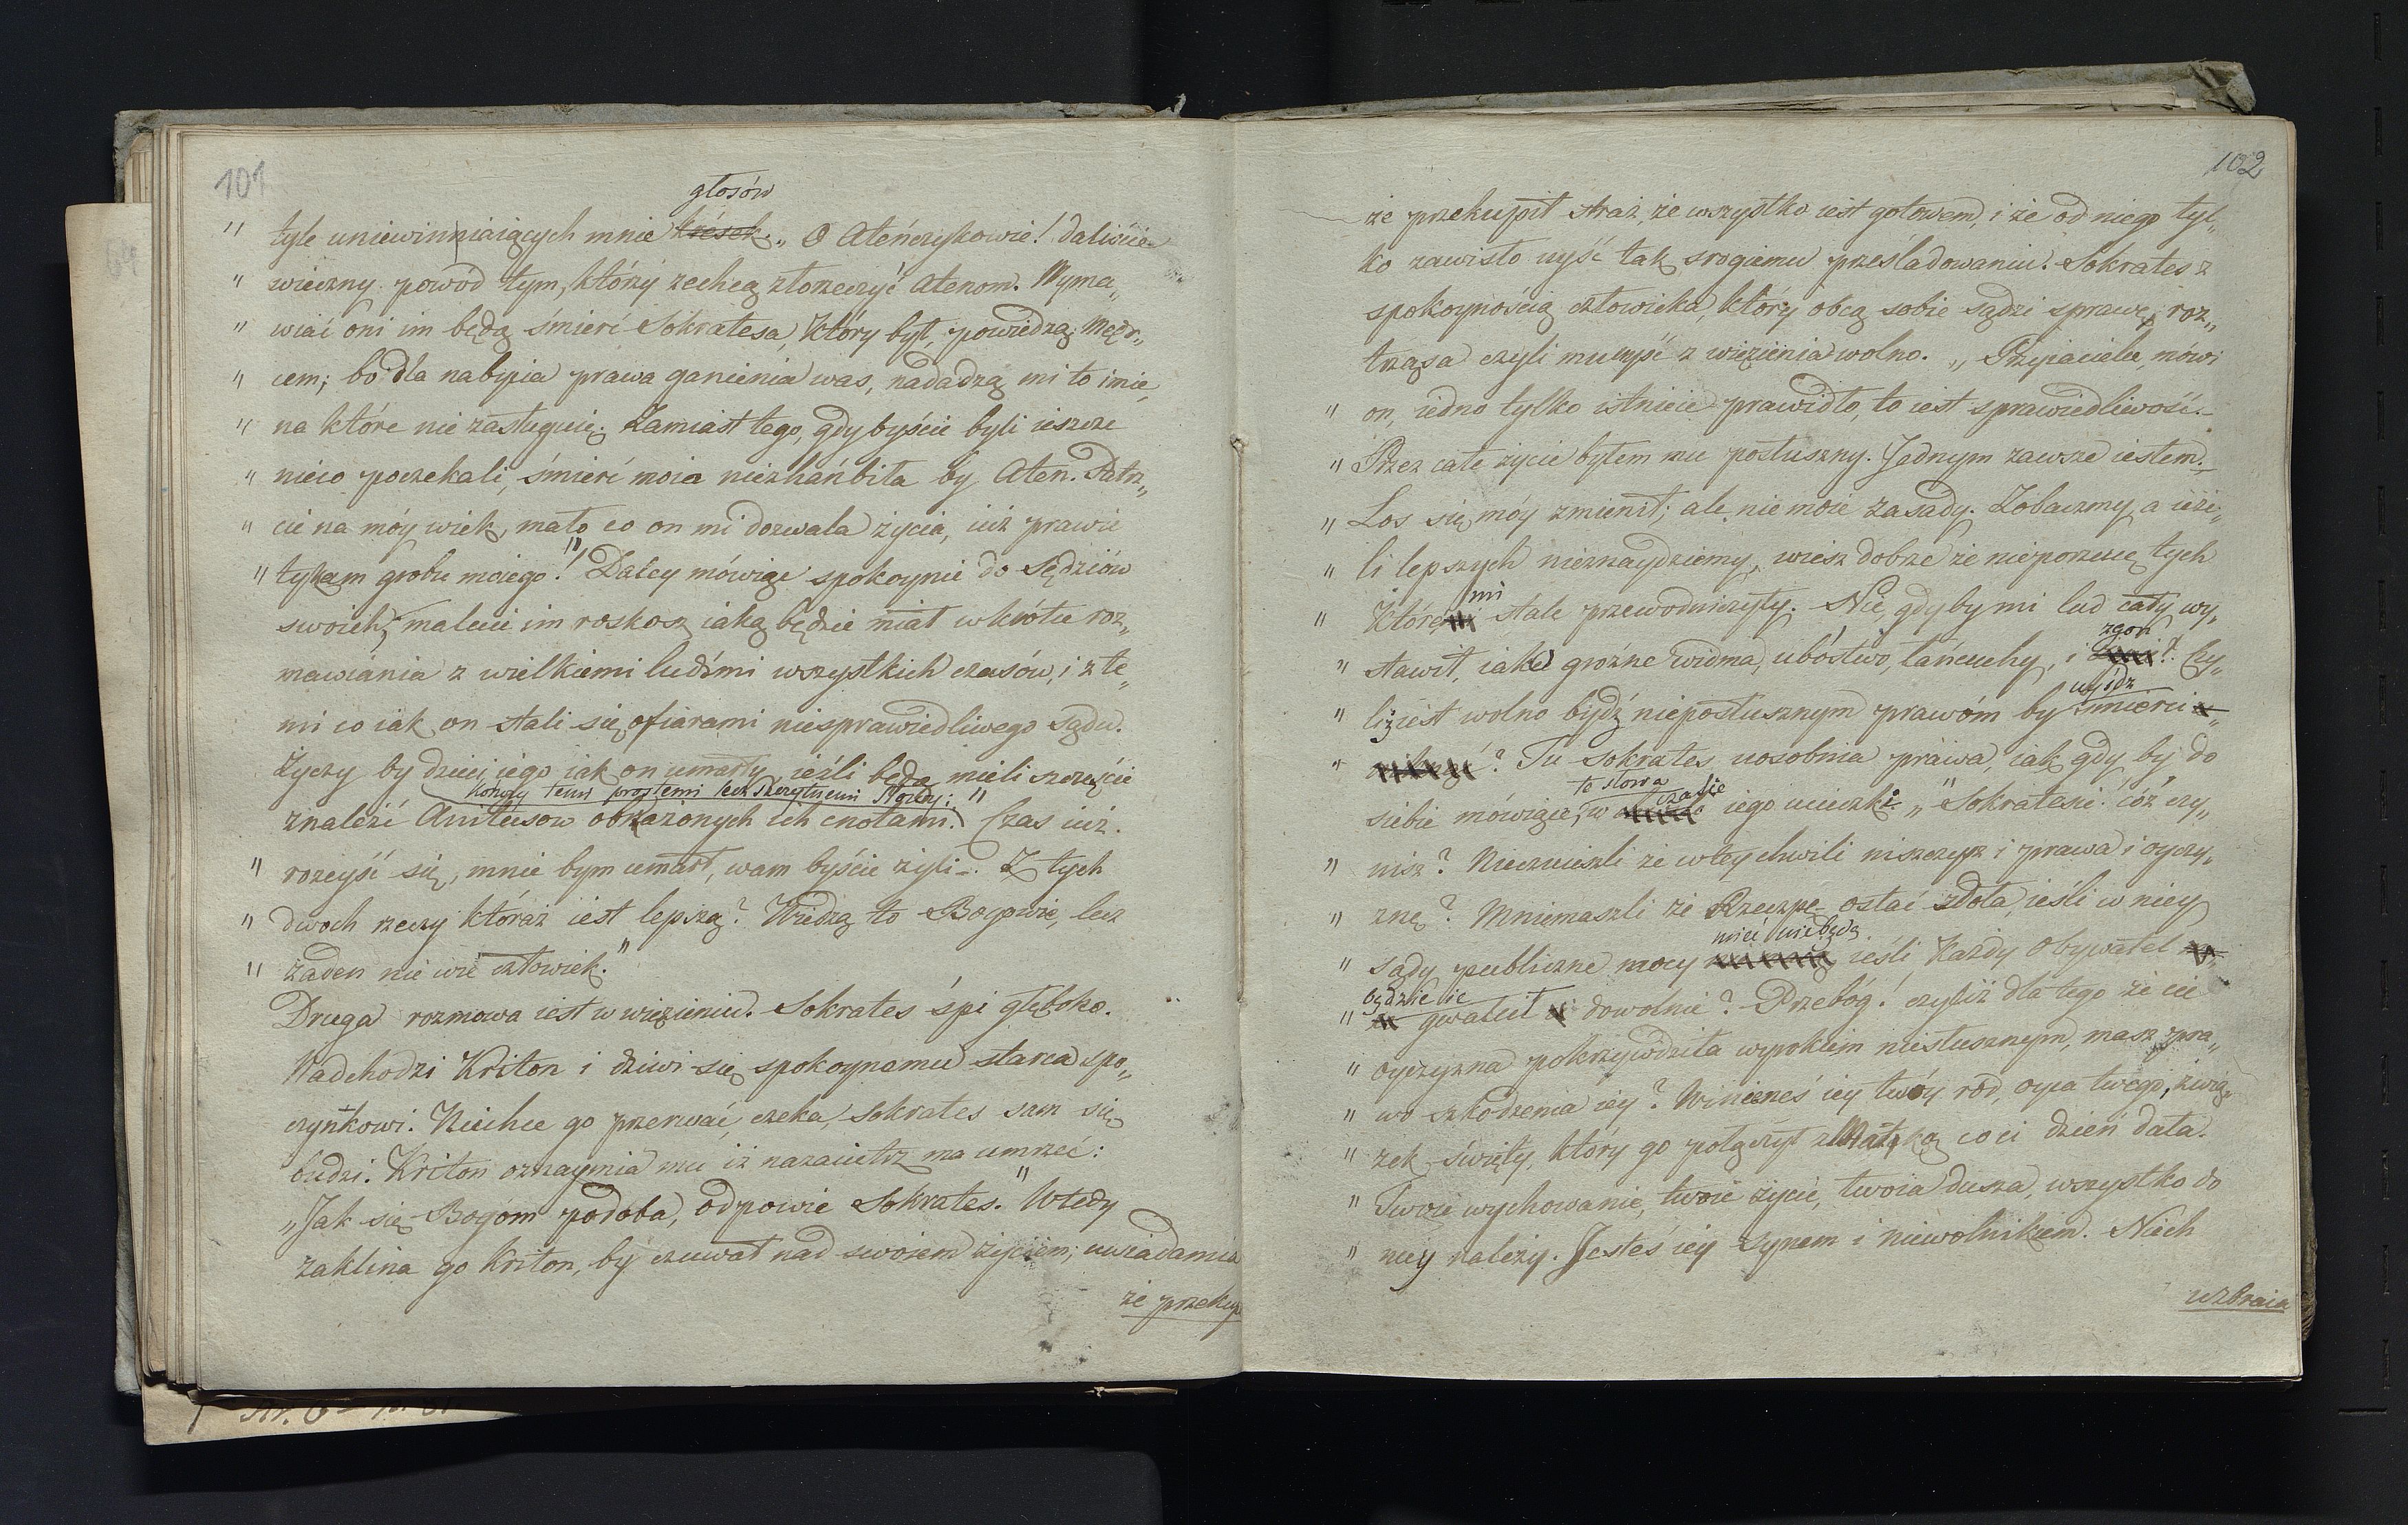 101
głosów
" tyle uniewinniaiących mnie krések. „ O Ateńczykowie! daliście
" wieczny powód tym, którzy zechcą złorzeczyć Atenom. Wyma„
" wiać oni im będą śmierć Sokratesa, który był, powiedzą, Mędr„
" cem; bo dla nabycia prawa ganienia was, nadadzą mi to imie,
" na które nie zasługuię. Zamiast tego, gdy byście byli ieszcze
" nieco poczekali, śmierć moia niezhańbiła by Aten. Patrz„
" cie na móy wiek, mało co on mi dozwala życia, iuż prawie
" tykam grobu moiego!" Daley mówiąc spokoynie do Sędziów
swoich, maluie im roskosz iaką będzie miał wkrótce roz„
mawiania z wielkiemi ludźmi wszystkich czasów, i z te„
mi co iak on stali się ofiarami niesprawiedliwego Sądu.
Życzy by dzieci iego iak on umarły, ieźli będą mieli szczęście
kończy temi prostemi lecz słowy: "
znaleźć Anitusow obrażonych ich cnotami. Czas iuż
" rozeyść się, mnie bym umarł, wam byście żyli. Z tych
" dwoch rzeczy któraż iest lepszą? Wiedzą to Bogowie, lecz
" żaden nie wie człowiek."
Druga rozmowa iest w więzieniu. Sokrates śpi głęboko.
Nadchodzi Kriton i dziwi się spokoynemu starca spo„
czynkowi. Niechce go przerwać, czeka, Sokrates sam się
budzi. Kriton oznaymia mu iż nazaiutrz ma umrzeć:
„Jak się Bogóm podoba, odpowie Sokrates." Wtedy
zaklina go Kriton, by czuwał nad swoiem życiem; uwiadamia
że przekup
102
że przekupił straż, że wszystko iest gotowem, i że od niego tyl„
ko zawisło uyść tak srogiemu prześladowaniu. Sokrates z
spokoynością człowieka, który obcą sobie sądzi sprawę, roz„
trząsa czyli mu uyść z więzienia wolno. „ Przyiacielu, mówi
" on, iedno tylko istnieie prawidło, to iest sprawiedliwość.
" Przez całe życie byłem mu posłuszny. Jednym zawsze iestem.
„ Los się móy zmienił; ale nie moie zasady. Zobaczmy, a ieże„
" li lepszych nieznaydziemy, wiesz dobrze że nieporzucę tych
mi
" Które stale przewodniczyły. Nie, gdyby mi lud cały wy„
zgon
" stawił, iako groźne widma, ubóstwo, łańcuchy, i !. Czy„
uyśdz
" liż iest wolno bydź nieposłusznym prawóm by śmierci
" ? Tu Sokrates uosobnia prawa, iak gdy by do
te słowa czasie
siebie mówiące, w iego ucieczki. „ Sokratesie! cóż czy„
" nisz? Nieczuieszli że w tey chwili niszczysz i prawa i oyczy„
" znę? Mniemaszli że Rzeczpę ostać zdoła, ieśli w niey
mieć niebędą
" sądy publiczne mocy ieśli Każdy Obywatel
będzie ie
" gwałcił dowolnie? Przebóg! czyliż dla tego że cie
" oyczyzna pokrzywdziła wyrokiem niesłusznym, masz pra„
" wo szkodzenia iey? Winieneś iey twóy ród, oyca twego, zwią„
" zek święty, który go połączył z Matką co ci dzień dała.
" Twoie wychowanie, twoie życie, twoia dusza, wszystko do
" niey należy. Jesteś iey synem i niewolnikiem. Niech
uzbraia